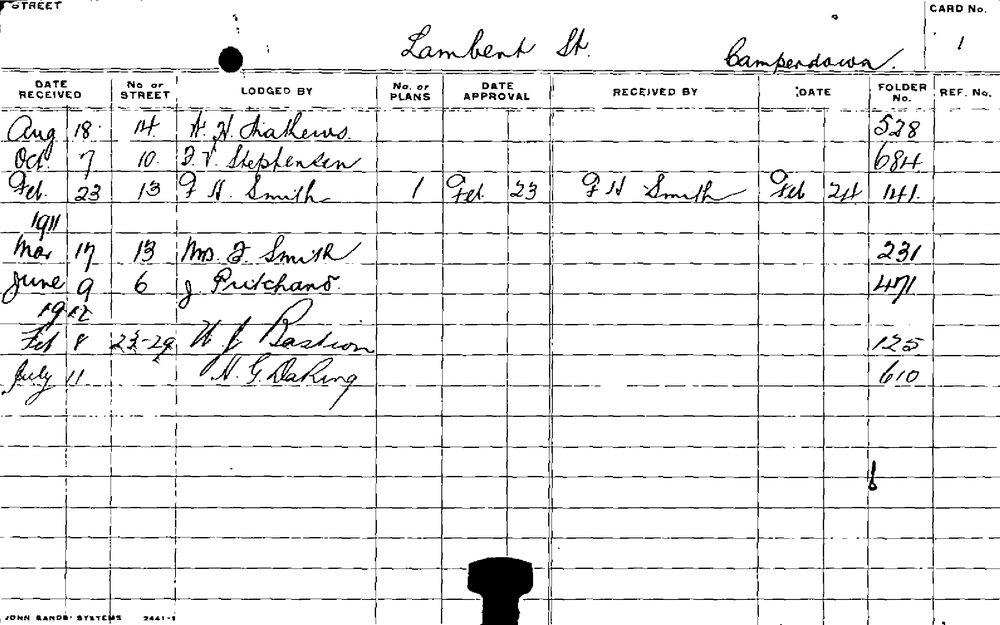 STREET
CARD No.
Lambert St.
Camperdown.
1
DATE RECEIVED No of STREET LODGED BY No. of PLANS DATE APPROVAL RECEIVED BY DATE FOLDER No. REF. No.
Aug 18 14 A. H. Mathews. 528
Oct. 7 10. F. V. Stephensen 684.
Feb. 23 13 F H. Smith 1 Feb. 23 F H Smith Feb 24 141.
1911
Mar 17 13 Mrs. F Smith 231
June 9 6 J Pritchard. 471
1912
Feb 8 23-29 W J Bastion 125
July 11 H. G. Daking 610
JOHN SANDS' SYSTEMS 2441-1